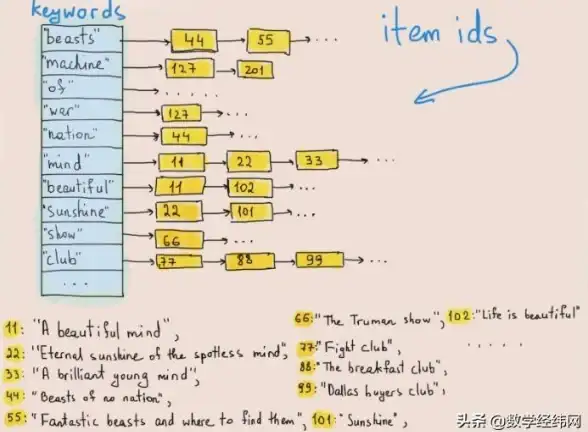 keywords
item ids
"beasts" 44 55 ...
"machine" 127 201
"of" ......
"war" 127 ...
"nation" 44 ...
"mind" 11 22 33 ...
"beautiful" 11 102 ...
"sunshine" 22 101 ...
"show" 66 ...
"club" 77 88 99 ...
...
11: "A beautiful mind",
22: "Eternal sunshine of the spotless mind",
33: "A brilliant young mind",
44: "Beasts of no nation",
55: "Fantastic beasts and where to find them", 101: "Sunshine",
66: "The Truman show", 102: "Life is beautiful"
77: "Fight club", .....
88: "The breakfast club",
99: "Dallas buyers club",
头条 @数学经纬网